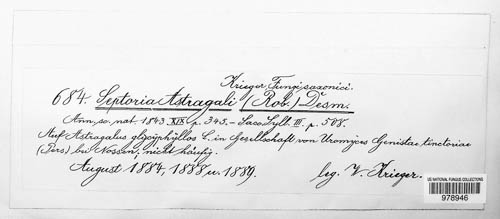 Krieger, Fungi saxonici.
684. Septoria Astragali (Rob.) Desm.
Ann. sc. nat. 1843. XIX. p. 345. – Sacc. Syll. III. p. 508.
Auf Astragalus glycyphyllos L. in Gesellschaft von Uromyces Genistae tinctoriae
(Pers) bei Nossen, nicht häufig.
August 1884, 1888 u. 1889. leg. W. Krieger.
US NATIONAL FUNGUS COLLECTIONS
978946